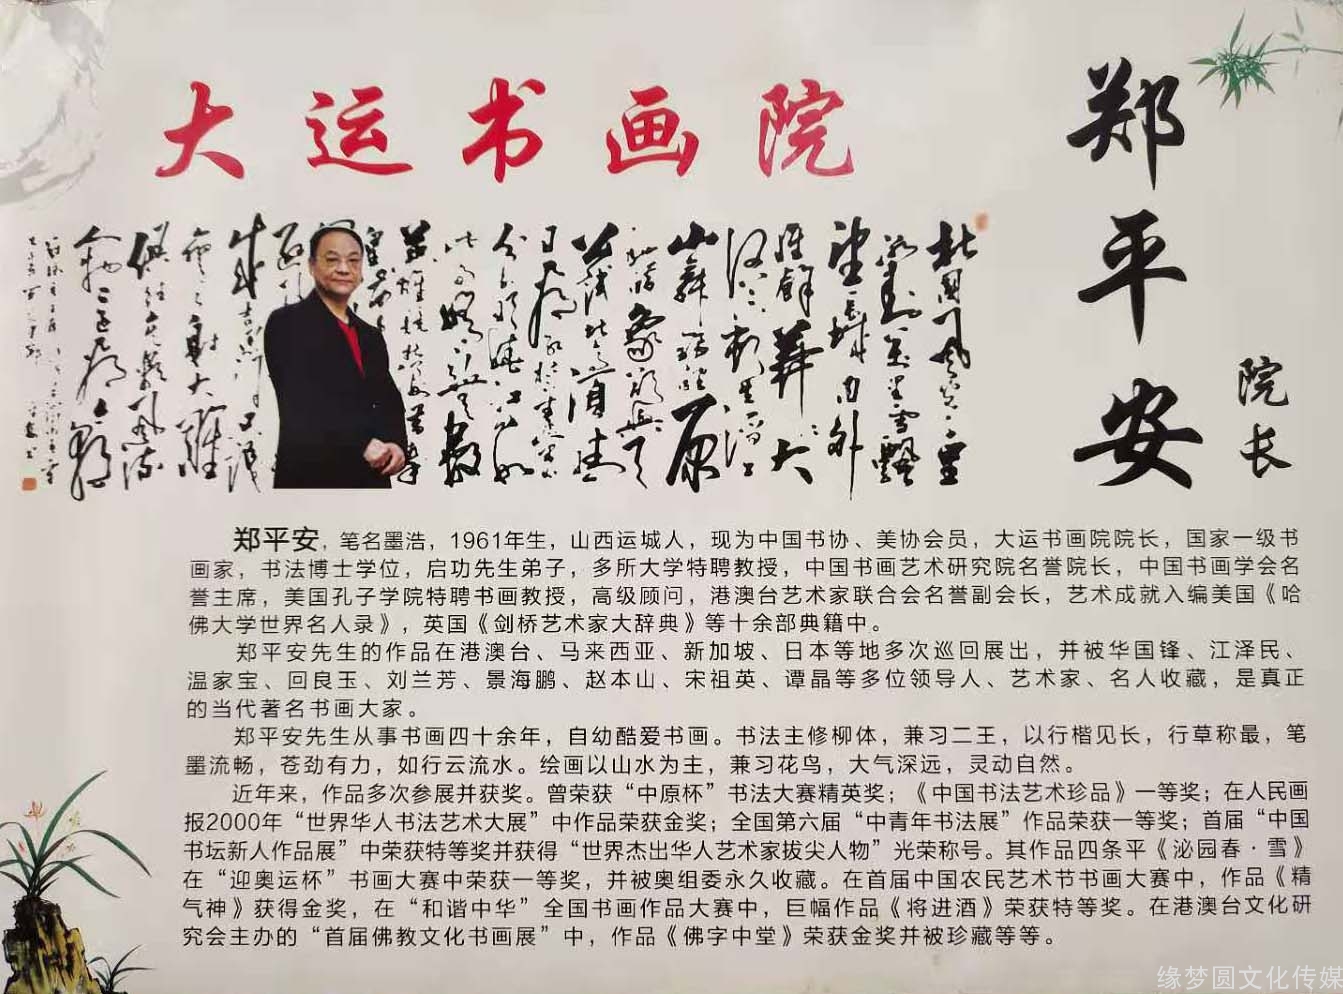 大运书画院
郑平安
院长
北国风光千里
冰封万里雪飘
望长城内外
惟余莽莽大
河上下顿失滔滔
山舞银蛇原
驰蜡象欲与天
公试比高须晴
日看红装素裹
分外妖娆江山如
此多娇引无数
郑平安，笔名墨浩，1961年生，山西运城人，现为中国书协、美协会员，大运书画院院长，国家一级书
画家，书法博士学位，启功先生弟子，多所大学特聘教授，中国书画艺术研究院名誉院长，中国书画学会名
誉主席，美国孔子学院特聘书画教授，高级顾问，港澳台艺术家联合会名誉副会长，艺术成就入编美国《哈
佛大学世界名人录》，英国《剑桥艺术家大辞典》等十余部典籍中。
郑平安先生的作品在港澳台、马来西亚、新加坡、日本等地多次巡回展出，并被华国锋、江泽民、
温家宝、回良玉、刘兰芳、景海鹏、赵本山、宋祖英、谭晶等多位领导人、艺术家、名人收藏，是真正
的当代著名书画大家。
郑平安先生从事书画四十余年，自幼酷爱书画。书法主修柳体，兼习二王，以行楷见长，行草称最，笔
墨流畅，苍劲有力，如行云流水。绘画以山水为主，兼习花鸟，大气深远，灵动自然。
近年来，作品多次参展并获奖。曾荣获“中原杯”书法大赛精英奖；《中国书法艺术珍品》一等奖；在人民画
报2000年“世界华人书法艺术大展”中作品荣获金奖；全国第六届“中青年书法展”作品荣获一等奖；首届“中国
书坛新人作品展”中荣获特等奖并获得“世界杰出华人艺术家拔尖人物”光荣称号。其作品四条平《泌园春·雪》
在“迎奥运杯”书画大赛中荣获一等奖，并被奥组委永久收藏。在首届中国农民艺术节书画大赛中，作品《精
气神》获得金奖，在“和谐中华”全国书画作品大赛中，巨幅作品《将进酒》荣获特等奖。在港澳台文化研
究会主办的“首届佛教文化书画展”中，作品《佛字中堂》荣获金奖并被珍藏等等。
缘梦圆文化传媒